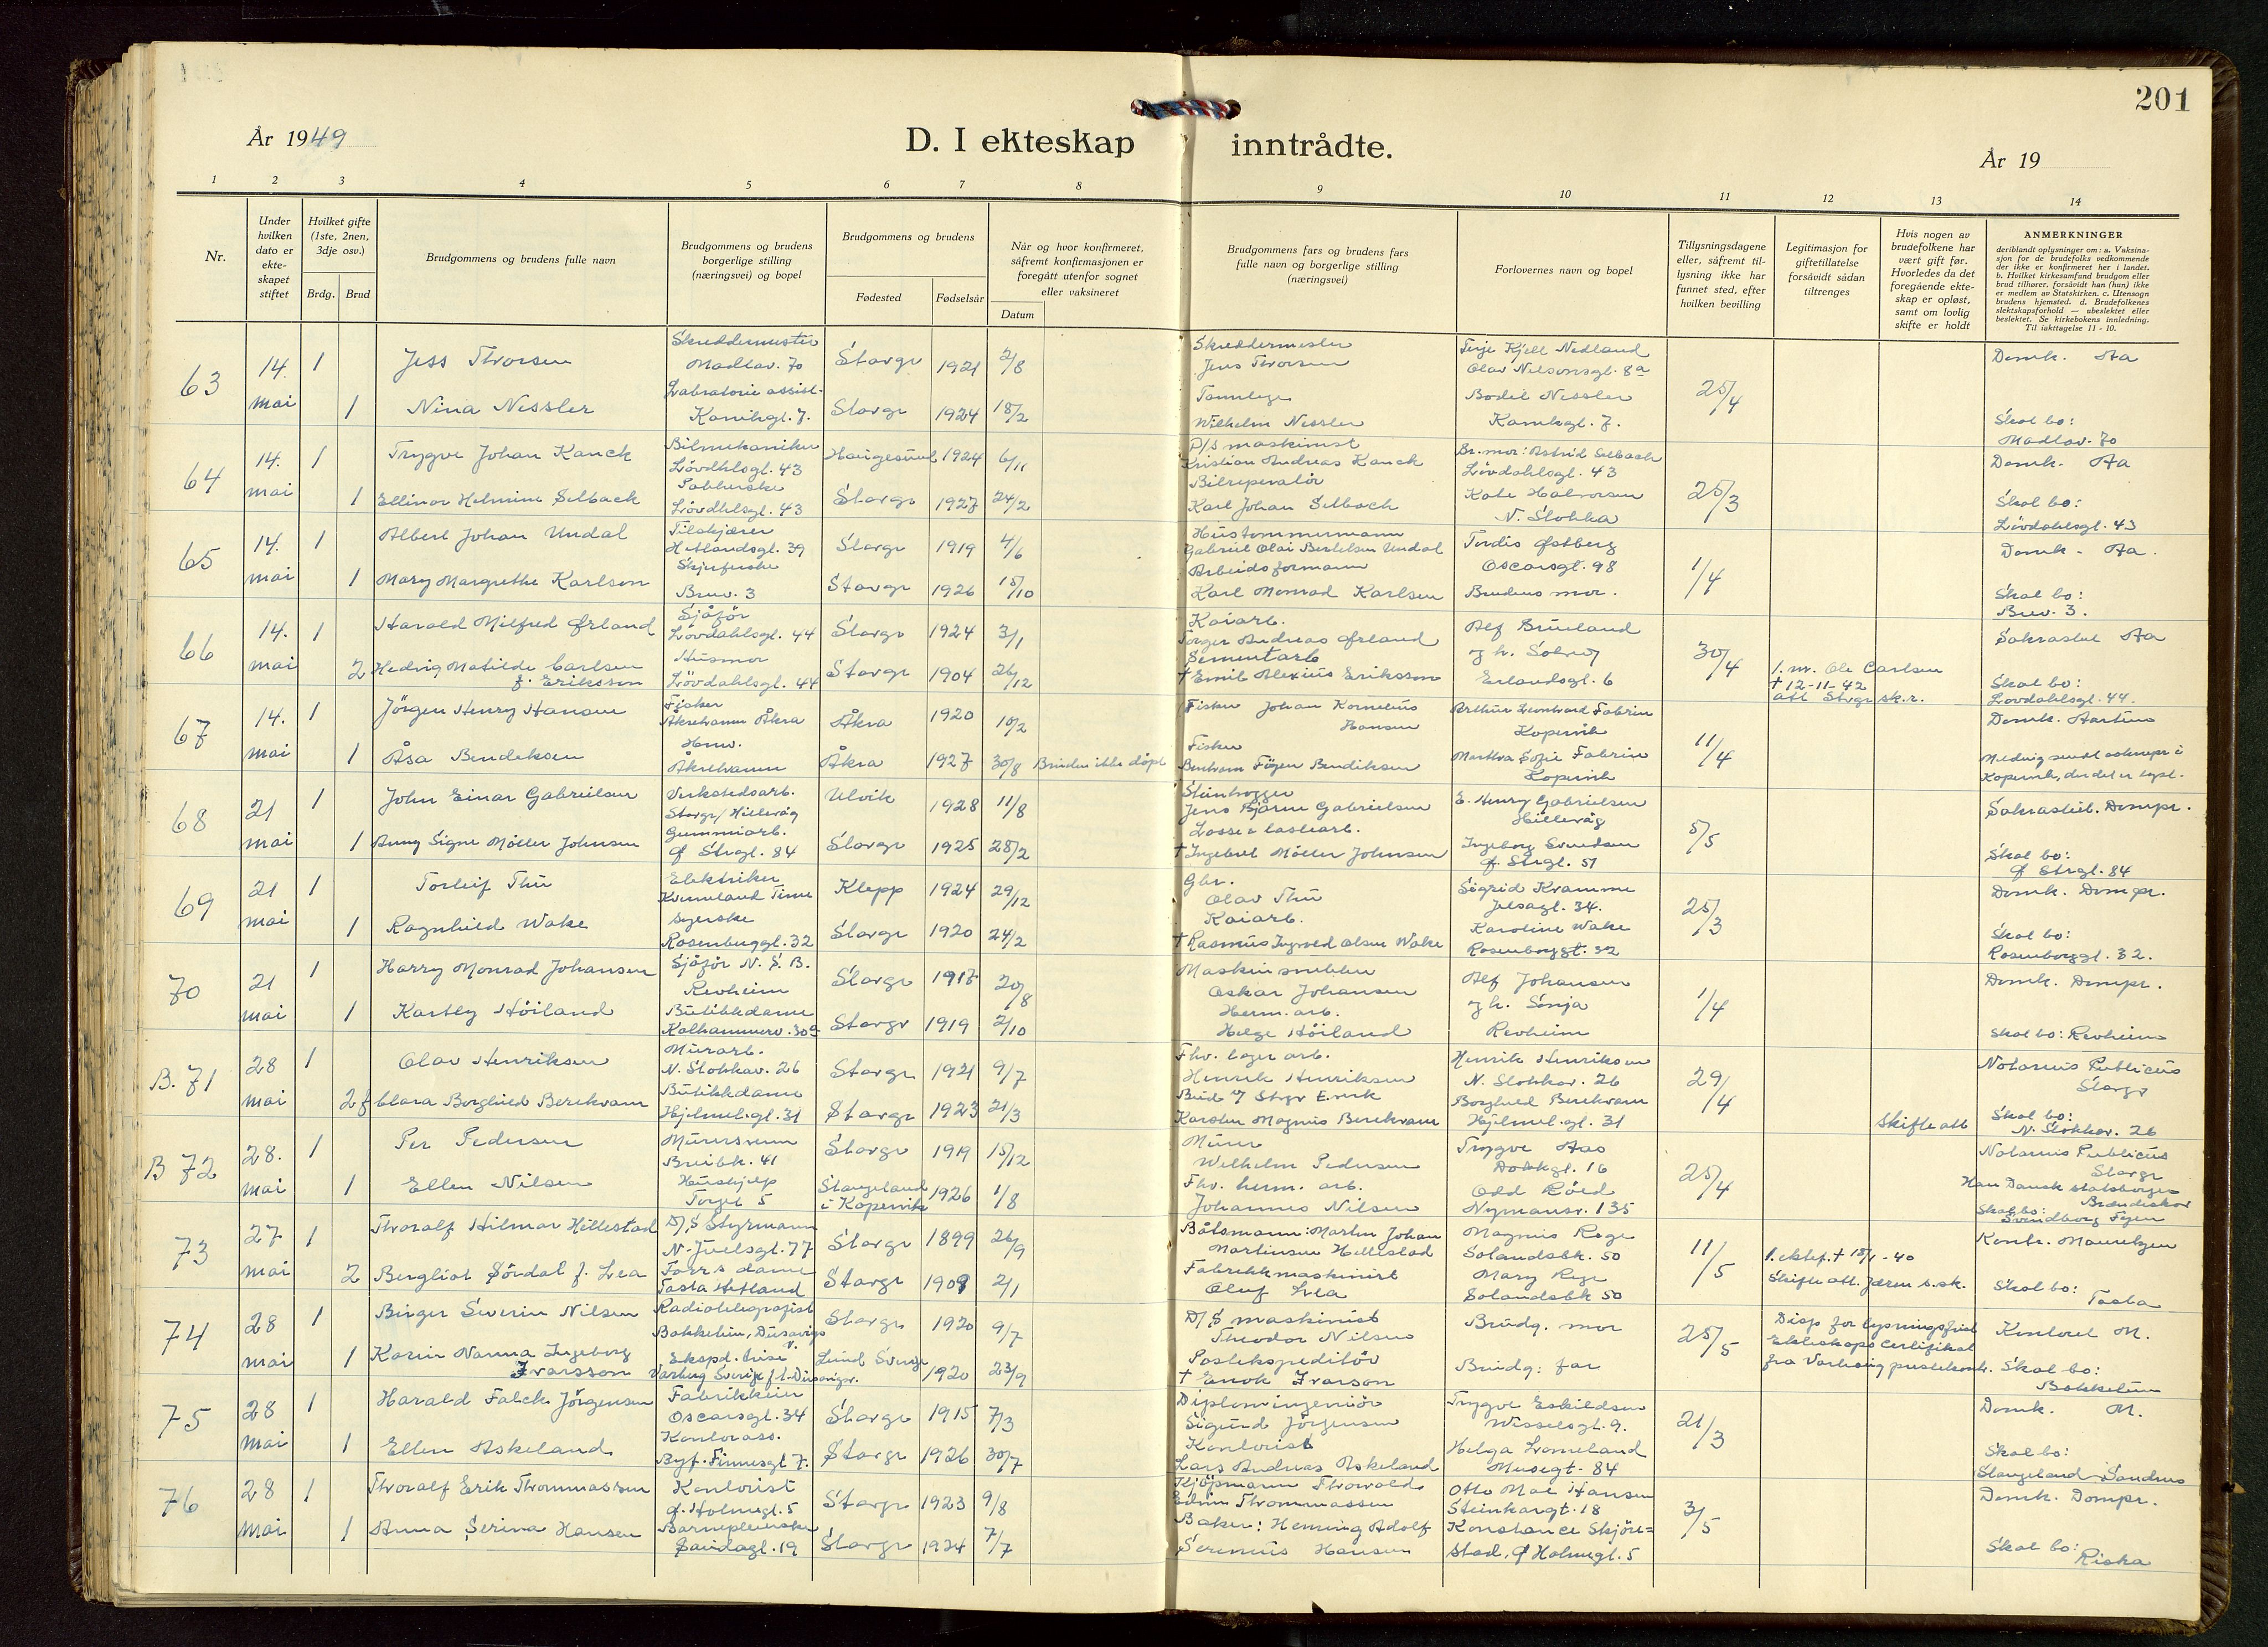 201
År 1949
D. I ekteskap inntrådte.
År 19
1 2 3 4 5 6 7 8 9 10 11 12 13 14
Nr.
Under hvilken dato er ekteskapet stiftet
Hvilket gifte (1ste, 2nen, 3dje osv.)
Brdg. Brud
Brudgommens og brudens fulle navn
Brudgommens og brudens borgerlige stilling (næringsvei) og bopel
Brudgommens og brudens
Fødested Fødselsår
Når og hvor konfirmeret, såfremt konfirmasjonen er foregått utenfor sognet eller vaksineret
Datum
Brudgommens fars og brudens fars fulle navn og borgerlige stilling (næringsvei)
Forlovernes navn og bopel
Tillysningsdagene eller, såfremt tillysning ikke har funnet sted, efter hvilken bevilling
Legitimasjon for giftetillatelse forsåvidt sådan tiltrenges
Hvis nogen av brudefolkene har vært gift før. Hvorledes da det foregående ekteskap er opløst, samt om lovlig skifte er holdt
ANMERKNINGER
deriblandt oplysninger om: a. Vaksinasjon for de brudefolks vedkommende der ikke er konfirmeret her i landet. b. Hvilket kirkesamfund brudgom eller brud tilhører, forsåvidt han (hun) ikke er medlem av Statskirken. c. Utensogn brudens hjemsted. d. Brudefolkenes slektskapsforhold — ubeslektet eller beslektet. Se kirkebokens innledning. Til iakttagelse 11 - 10.
63 14. mai 1 Jess Thorsen Skreddermester Madlav. 70 Stavgr 1921 2/8 Skreddermester Jens Thorsen Terje Kjell Nedland Olav Nilsensgt. 8a 25/4 Domk. Aa
1 Nina Nessler Labratorie assist. Kanikgt. 7. Stavgr 1924 18/2 Tannlege Wilhelm Nessler Bodil Nessler Kanikgt. 7. Skal bo: Madlav. 70
64 14. mai 1 Trygve Johan Kanck Bilmekaniker Lövdahlsgt. 43 Haugesund 1924 6/11 D/S maskinist Kristian Andreas Kanck Br. mor: Astrid Selbach Lövdahlsgt. 43 25/3 Domk. Aa
1 Ellinor Helmine Selback Lövdhlsgt. 43 Stavgr 1927 24/2 Bilreperatör Karl Johan Selbach Kate Halvorsen N. Stokka Skal bo: Lövdahlsgt. 43
65 14. mai 1 Albert Johan Undal Tilskjærer Hetlandsgt. 39 Stavgr 1919 4/6 Hustømmermann Gabriel Olai Bertelsen Undal Tordis Østberg Oscarsgt. 98 1/4 Domk. Aa.
1 Mary Margrethe Karlson Brev. 3 Stavgr 1926 15/10 Arbeidsformann Karl Monrad Karlsen Brudens mor. Skal bo: Brev. 3.
66 14. mai 1 Harald Milfred Ørland Sjåför Lövdahlsgt. 44 Stavgr 1924 3/1 Kaiarb. Torger Andreas Ørland Alf Brueland 30/4 Sakrastiet Aa
2 Hedvig Matilde Carlsen f. Eriksson Husmor Lövdahlsgt. 44 Stavgr 1904 26/12 Sementarb † Emil Alexius Eriksson og h. Solveig Erlandsgt. 6 1. m. Ole Carlsen † 12-11-42 att Stvgr sk.r. Skal bo: Lovdahlsgt. 44.
67 14. mai 1 Jörgen Henry Hansen Fisker Åkrehamn Åkra Åkra 1920 10/2 Fisker Johan Kornelius Hansen Arthur Leonhard Fabrin Kopervik 11/4 Domk.
1 Åsa Bendiksen Husv. Åkrehamn Åkra 1927 30/8 Bruden ikke döpt Fisker Bendiksen Martha Sofie Fabrin Kopervik
68 21 mai 1 John Einar Gabrielsen Verkstedsarb. Stavgr/Hillevåg Ulvik 1928 11/8 Steinhogger Jens Bjårne Gabrielsen E. Henry Gabrielsen Hillevåg 5/5 Sakrastiet. Dompr.
1 Anny Signe Möller Johnsen Gummiarb. Ø Strgt. 84 Stavgr 1925 28/2 Losse & lastearb. † Ingebret Möller Johnsen Ingeborg Svendsen Ø. Strgt. 51 Skal bo: Ø Strgt. 84
69 21 mai 1 Torleif Thu Elektriker Kverneland Time Klepp 1924 29/12 Gbr. Olav Thu Sigrid Kramme Jelsagt. 34. 25/3 Domk. Dompr.
1 Ragnhild Wake Syerske Rosenberggt. 32 Stavgr 1920 24/2 Kaiarb. † Rasmus Ingvald Olsen Wake Karoline Wake Rosenberggt. 32 Skal bo: Rosenborggt. 32.
70 21 mai 1 Harry Monrad Johansen Sjåför N. S. B. Revheim Stavgr 1917 20/8 Maskinsnekker Oskar Johansen Alf Johansen og h. Sonja Revheim 1/4 Domk. Dompr.
1 Kartly Höiland Butikkdame Kalhammerv. 30a Stavgr 1919 2/10 Herm. arb. Helge Höiland Skal bo: Revheim
B. 71 28 mai 1 Olav Henriksen Murarb. N. Stokkav. 26 Stavgr 1921 9/7 Fhv. lager arb. Henrik Henriksen Henrik Henriksen N. Stokkav. 26 29/4 Notarius Publicus Stavgr
2 f Clara Borghild Berekvam Butikkdame Hjelmel.gt. 31 Stavgr 1923 21/3 Karsten Magnus Berekvam Borghild Berekvam Hjelmel.gt. 31 Skifte att Skal bo: N. Stokkav. 26
B 72 28. mai 1 Per Pedersen Murersvenn Breibk. 41 Stavgr 1919 15/12 Murer Wilhelm Pedersen Trygve Aas Dokkgt. 16 25/4 Notarius Publicus Stavgr
1 Ellen Nilsen Hushjelp Torget 5 Stangeland i Kopervik 1926 1/8 Fhv. herm. arb. Johannes Nilsen Odd Röed Nymansv. 135 Han Dansk statsborger Skal bo: Svendborg Fyen
73 27 mai 1 Thoralf Hilmar Hillestad D/S Styrmann N. Juelsgt. 77 Stavgr 1899 26/9 Båtsmann: Martin Johan Martinsen Hellestad Magnus Rege Solandsbk. 50 11/5 1. ektef. † 18/1-40 Kontr. Mauritzen
2 Bergliot Sördal f. Lea Forr.s dame Tasta Hetland Stavgr 1909 2/1 Fabrikkmaskinist Oluf Lea Mary Rege Solandsbk 50 Skifte att. Jæren s.sk. Skal bo: Tasta
74 28 mai 1 Birger Severin Nilsen Radiotelegrafist Bakkeheim, Dusavigv. Stavgr 1920 9/7 D/S maskinist Theodor Nilsen Brudg. mor 25/5 Disp for lysningsfrist Ekteskaps certifikat Kontoret M.
1 Karin Nanna Ingeborg Ivarsson Ekspd. trise Varberg Sverige Lund Sverige 1920 23/9 Postekspeditör † Enok Ivarson Brudg: far fra Varberg Skal bo: Bakkeheim
75 28 mai 1 Harald Falck Jörgensen Fabrikkeier Oscarsgt. 34 Stavgr 1915 7/3 Diplomingeniör Sigurd Jörgensen Trygve Eskildsen Wesselsgt. 9. 21/3 Domk. M.
1 Ellen Askeland Kontorass. Byf. Finnesgt 7. Stavgr 1926 30/7 Kontorist Lars Andreas Askeland Helga Lomeland Musegt. 84 Skal bo: Stangeland Sandnes
76 28 mai 1 Thoralf Erik Thommassen Kontorist Ø. Holmegt. 5 Stavgr 1923 9/8 Kjöpmann Thorvald Edvin Thommassen Otto Mal Hansen Steinkargt. 18 3/5 Domk. Dompr.
1 Anna Serina Hansen Barnepleierske Saudagt. 19 Stavgr 1924 7/7 Baker: Henning Adolf Serenius Hansen Konstance Skjörestad, Ø Holmegt. 5 Skal bo: Riska